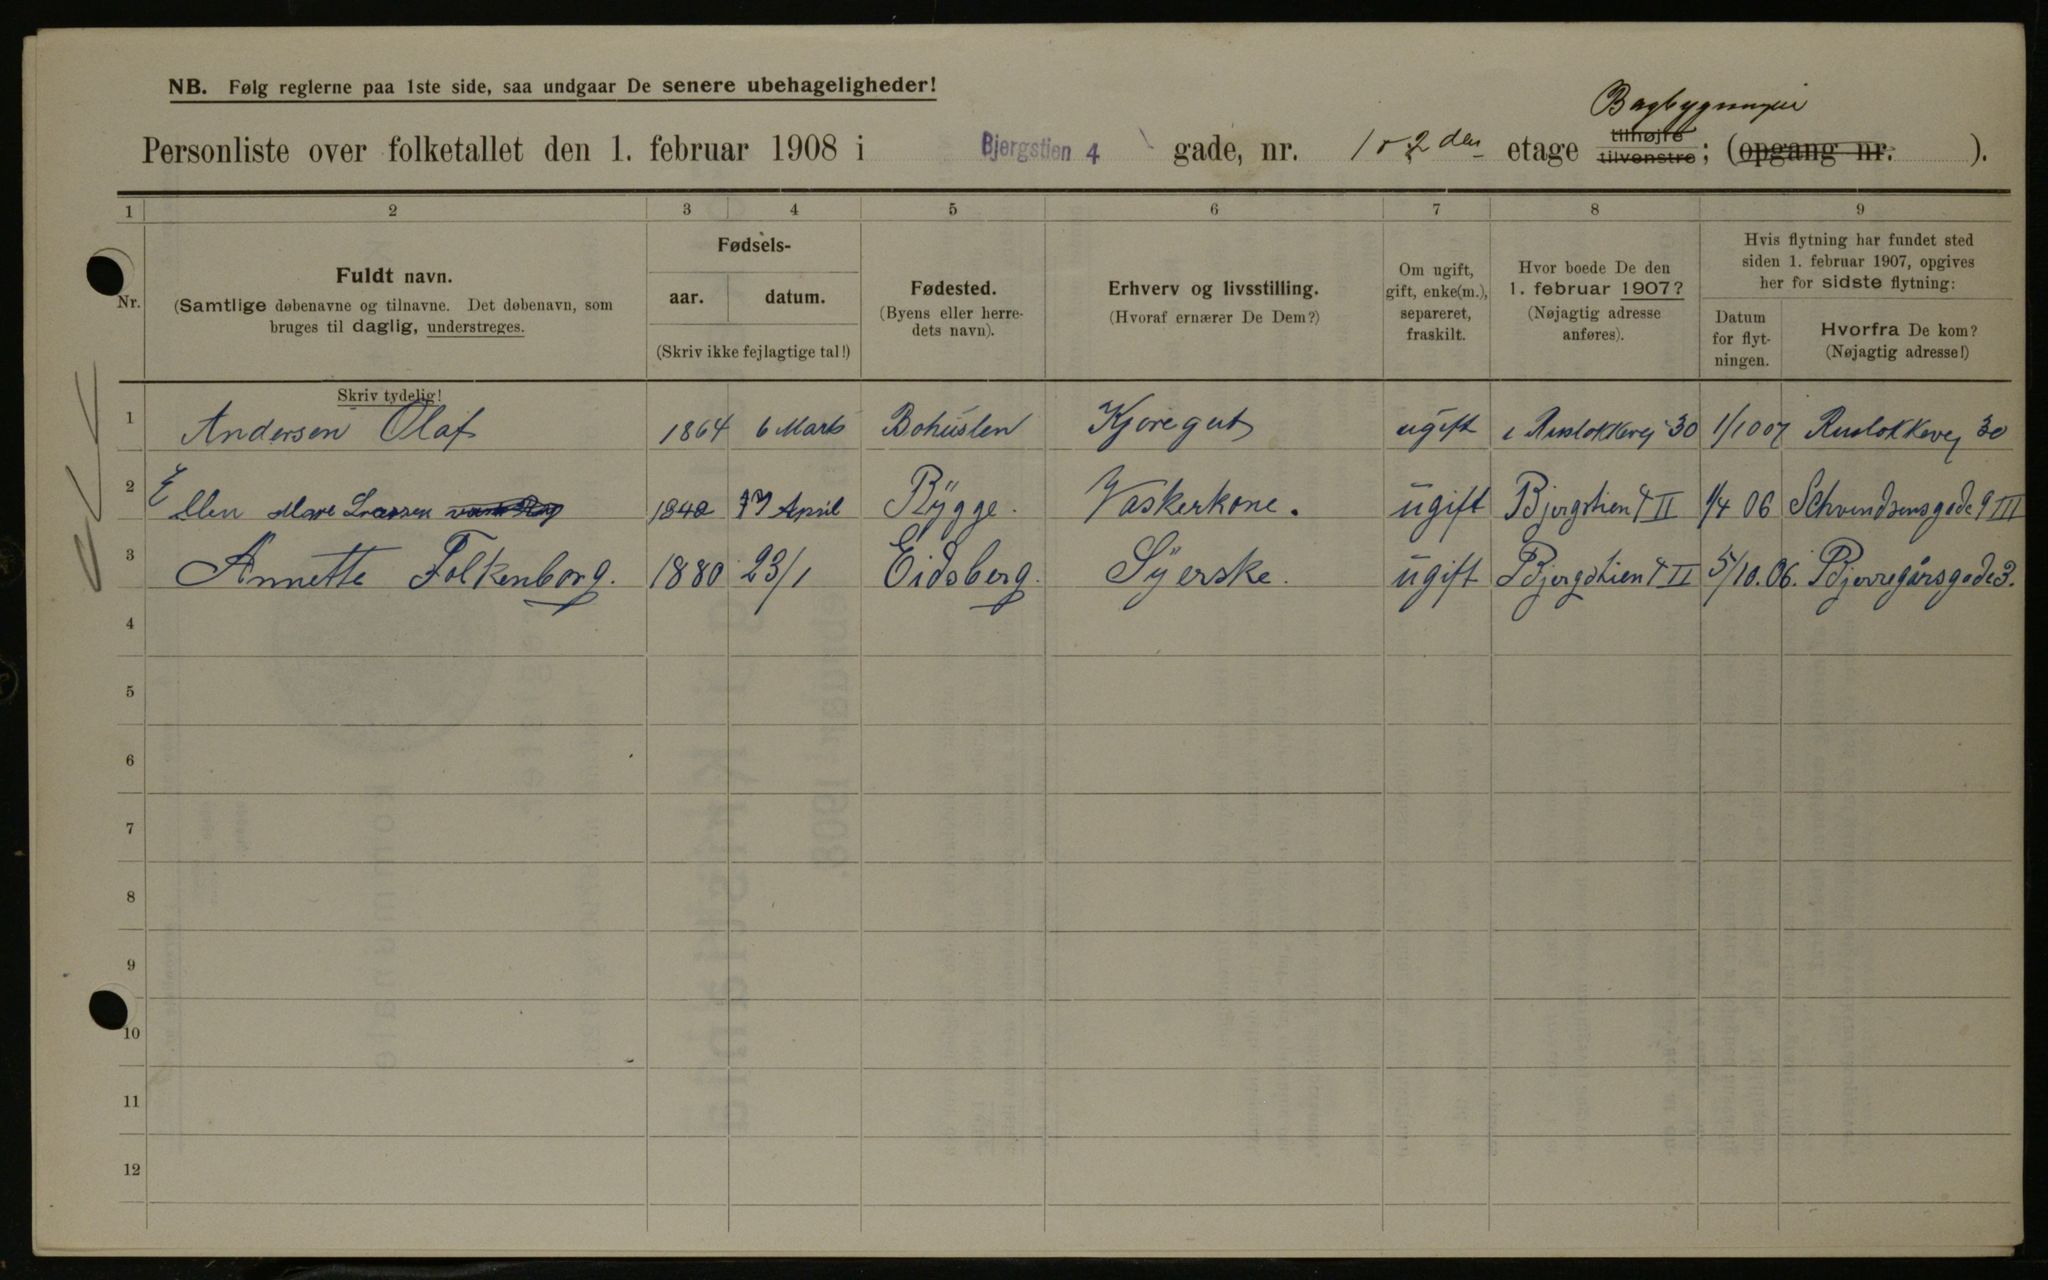 NB. Følg reglerne paa 1ste side, saa undgaar De senere ubehageligheder!
Personliste over folketallet den 1. februar 1908 i Bjergstien 4 gade, nr. 1 o 2 den etage tilhøjre tilvenstre; (opgang nr. ).
1 2 3 4 5 6 7 8 9
Nr.
Fuldt navn.
(Samtlige døbenavne og tilnavne. Det døbenavn, som
bruges til daglig, understreges.
Skriv tydelig!
Fødsels-
aar. datum.
(Skriv ikke fejlagtige tal!)
Fødested.
(Byens eller herre-
dets navn).
Erhverv og livsstilling.
(Hvoraf ernærer De Dem?)
Om ugift,
gift, enke(m.),
separeret,
fraskilt.
Hvor boede De den
1. februar 1907?
(Nøjagtig adresse
anføres).
Hvis flytning har fundet sted
siden 1. februar 1907, opgives
her for sidste flytning:
Datum
for flyt-
ningen.
Hvorfra De kom?
(Nøjagtig adresse!)
1 Andersen Olaf 1864 6 Marts Bohuslen Kjøregut ugift Ruslokkevej 30 1/10 07 Ruslokkevej 30
2 Ellen Larssen 1842 April Rygge. Vaskerkone. ugift Bjergstien 4 II 1/4 06 Schvendsensgade 9 III
3 Annette Folkenborg. 1880 23/1 Eidsberg. Syerske. ugift Bjergstien 4 II 5/10.06. Bjerregårsgade 3.
4
5
6
7
8
9
10
11
12